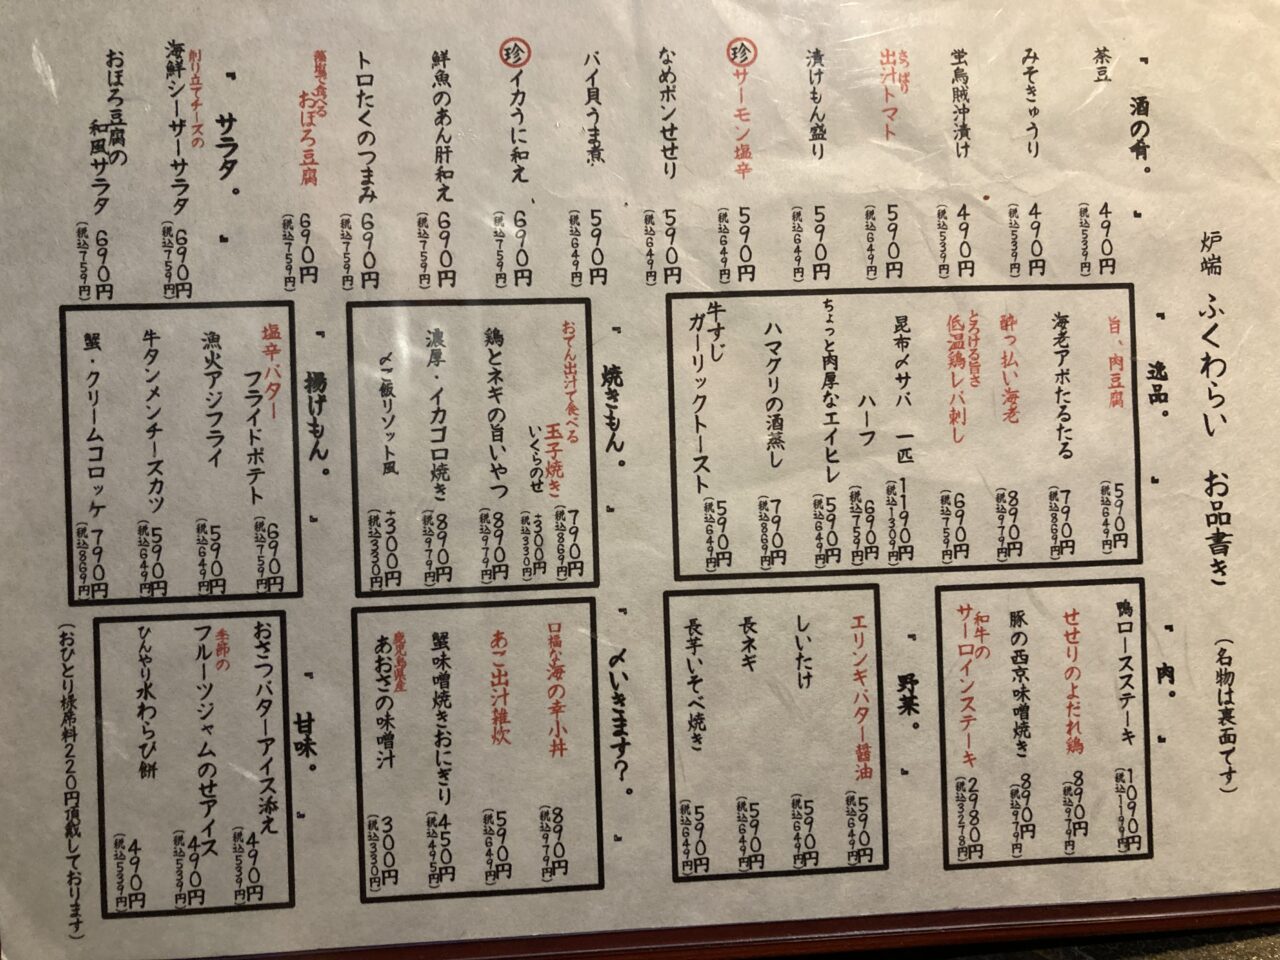 炉端 ふくわらい お品書き (名物は裏面です)
『酒の肴。』
茶豆 490円(税込539円)
みそきゅうり 490円(税込539円)
蛍烏賊沖漬け 490円(税込539円)
さっぱり出汁トマト 590円(税込649円)
漬けもん盛り 590円(税込649円)
珍 サーモン塩辛 590円(税込649円)
なめポンせせり 590円(税込649円)
バイ貝うま煮 590円(税込649円)
珍 イカうに和え 690円(税込759円)
鮮魚のあん肝和え 690円(税込759円)
トロたくのつまみ 690円(税込759円)
藻塩で食べるおぼろ豆腐 690円(税込759円)
『サラダ。』
削り立てチーズの
海鮮シーザーサラダ 690円(税込759円)
おぼろ豆腐の
和風サラダ 690円(税込759円)
『逸品。』
旨、肉豆腐 590円(税込649円)
海老アボたるたる 790円(税込869円)
酔っ払い海老 890円(税込979円)
とろける旨さ
低温鶏レバ刺し 690円(税込759円)
昆布〆サバ 一匹 1190円(税込1309円)
ハーフ 690円(税込759円)
ちょっと肉厚なエイヒレ 590円(税込649円)
ハマグリの酒蒸し 790円(税込869円)
牛すじ
ガーリックトースト 590円(税込649円)
『焼きもん。』
おでん出汁で食べる
玉子焼き 790円(税込869円)
いくらのせ +300円(税込330円)
鶏とネギの旨いやつ 890円(税込979円)
濃厚・イカコロ焼き 890円(税込979円)
〆ご飯リゾット風 +300円(税込330円)
『揚げもん。』
塩辛バター
フライドポテト 690円(税込759円)
漁火アジフライ 590円(税込649円)
牛タンメンチーズカツ 590円(税込649円)
蟹・クリームコロッケ 790円(税込869円)
『肉。』
鴨ロースステーキ 1090円(税込1199円)
せせりのよだれ鶏 890円(税込979円)
豚の西京味噌焼き 890円(税込979円)
和牛の
サーロインステーキ 2980円(税込3278円)
『野菜。』
エリンギバター醤油 590円(税込649円)
しいたけ 590円(税込649円)
長ネギ 590円(税込649円)
長芋いそべ焼き 590円(税込649円)
『〆いきます?。』
口福な海の幸小丼 890円(税込979円)
あご出汁雑炊 590円(税込649円)
蟹味噌焼きおにぎり 450円(税込495円)
鹿児島県産
あおさの味噌汁 300円(税込330円)
『甘味。』
おさつバターアイス添え 490円(税込539円)
季節の
フルーツジャムのせアイス 490円(税込539円)
ひんやり水わらび餅 490円(税込539円)
(おひとり様席料220円頂戴しております)